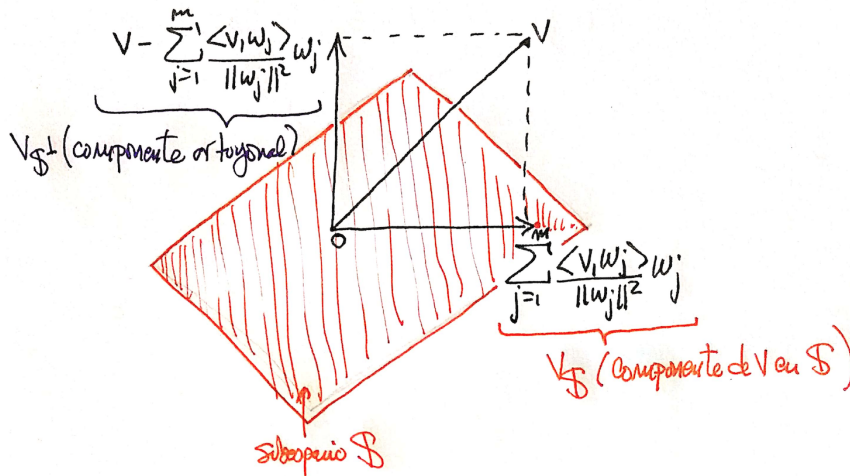 V - \sum_{j=1}^{m} \frac{<v, w_j>}{||w_j||^2} w_j
V
V_{$^⊥} (componente ortogonal)
O
\sum_{j=1}^{m} \frac{<v, w_j>}{||w_j||^2} w_j
V_$ (componente de V en $)
subespacio $